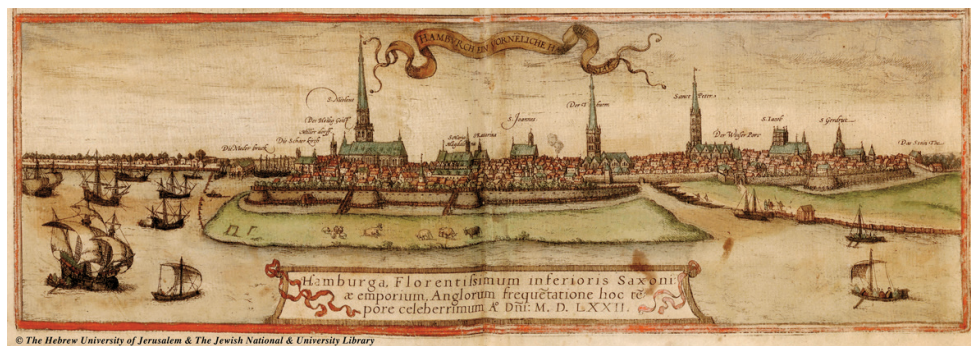 HAMBURCH EIN VORNELICHE HA
S. Nicolaus
Der Heilig Geist
Die Schar kirch
Die Nieder bruck
Maria Magdalena
S. Joannes
Der Thurm
Sanct Peter
Der Weisse Perc
S. Iacob
S. Gerdrut
Hamburga, Florentißimum inferioris Saxoni
æ emporium, Anglorum frequẽtatione hoc tẽ
pore celeberrimum Æ Dñi: M. D. LXXII.
© The Hebrew University of Jerusalem & The Jewish National & University Library